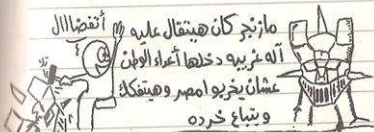 أتفضااال
مازنجر كان هيتقال عليه
آله غريبه دخلها أعداء الوطن
عشان يخربوا مصر وهيتفكك
ويتباع خرده